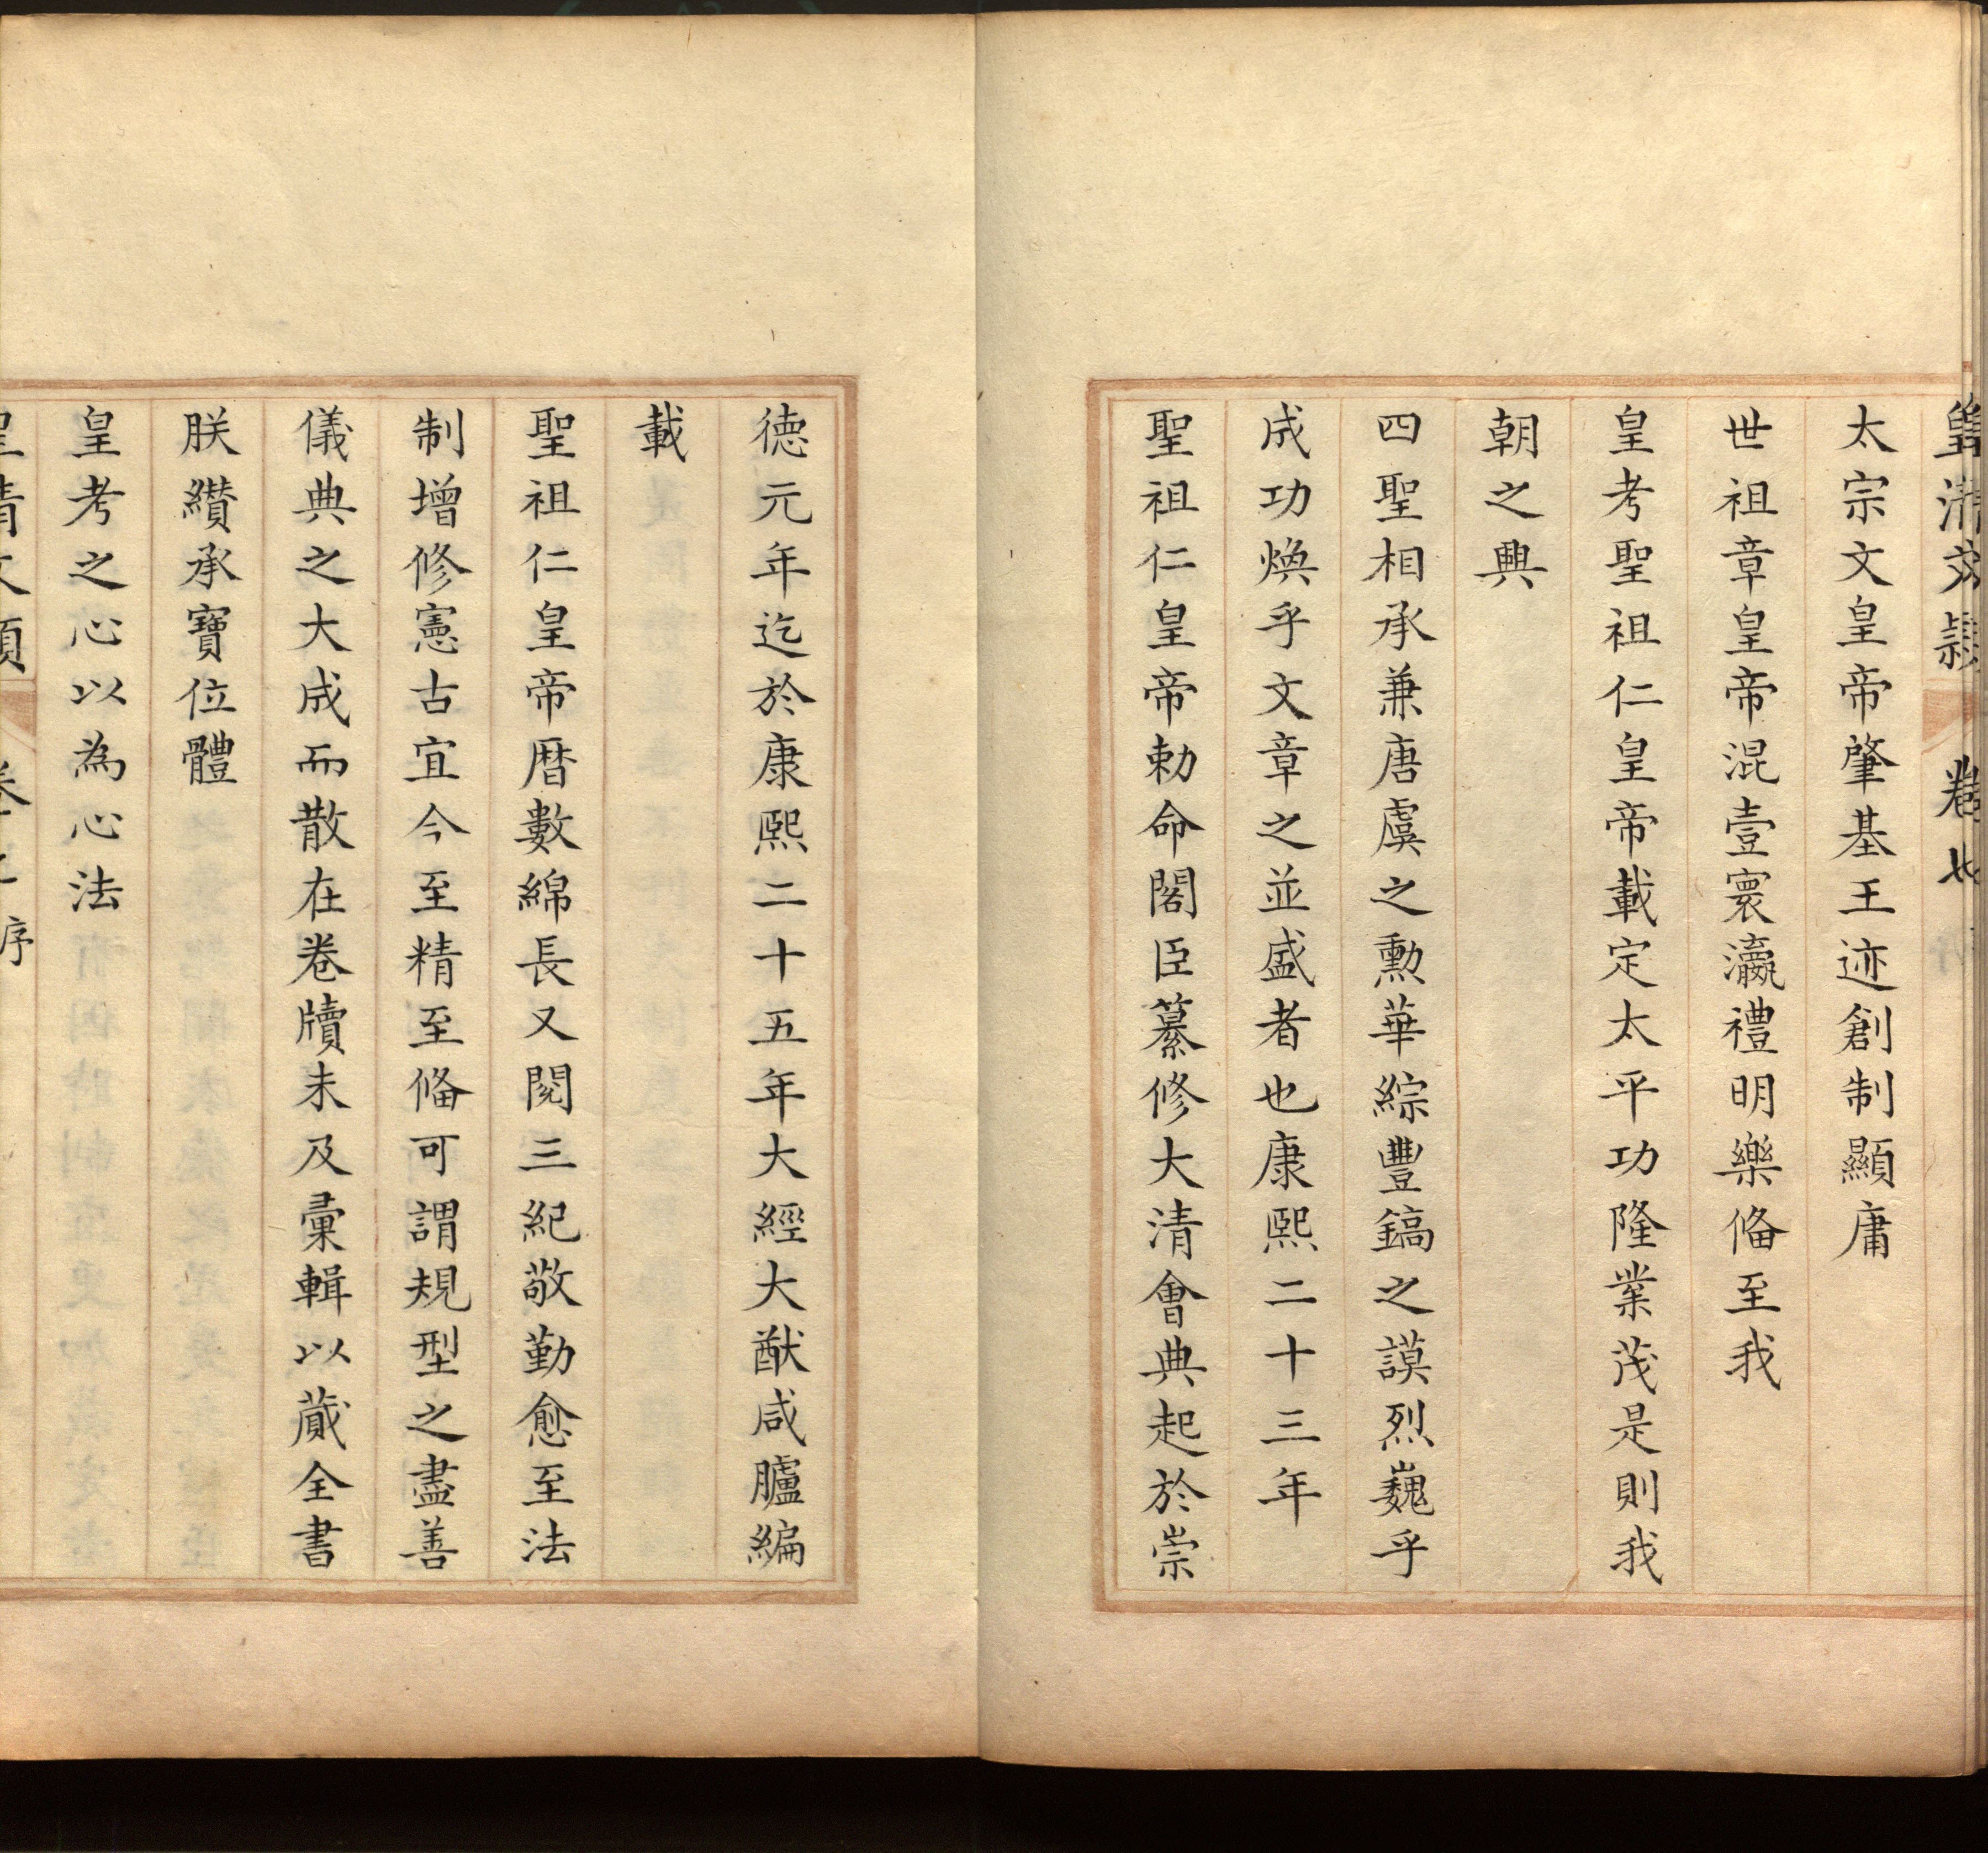 太宗文皇帝肇基王迹創制顯庸
世祖章皇帝混壹寰瀛禮明樂俻至我
皇考聖祖仁皇帝載定太平功隆業茂是則我
朝之興
四聖相承兼唐虞之勲華綜豐鎬之謨烈巍乎
成功煥乎文章之並盛者也康熙二十三年
聖祖仁皇帝勅命閣臣纂修大清會典起於崇
德元年迄於康熙二十五年大經大猷咸臚編
載
聖祖仁皇帝暦數綿長又閱三紀敬勤愈至法
制增修憲古宜今至精至俻可謂規型之盡善
儀典之大成而散在卷牘未及彚輯以蕆全書
朕纘承寶位體
皇考之心以為心法
皇清文穎 序